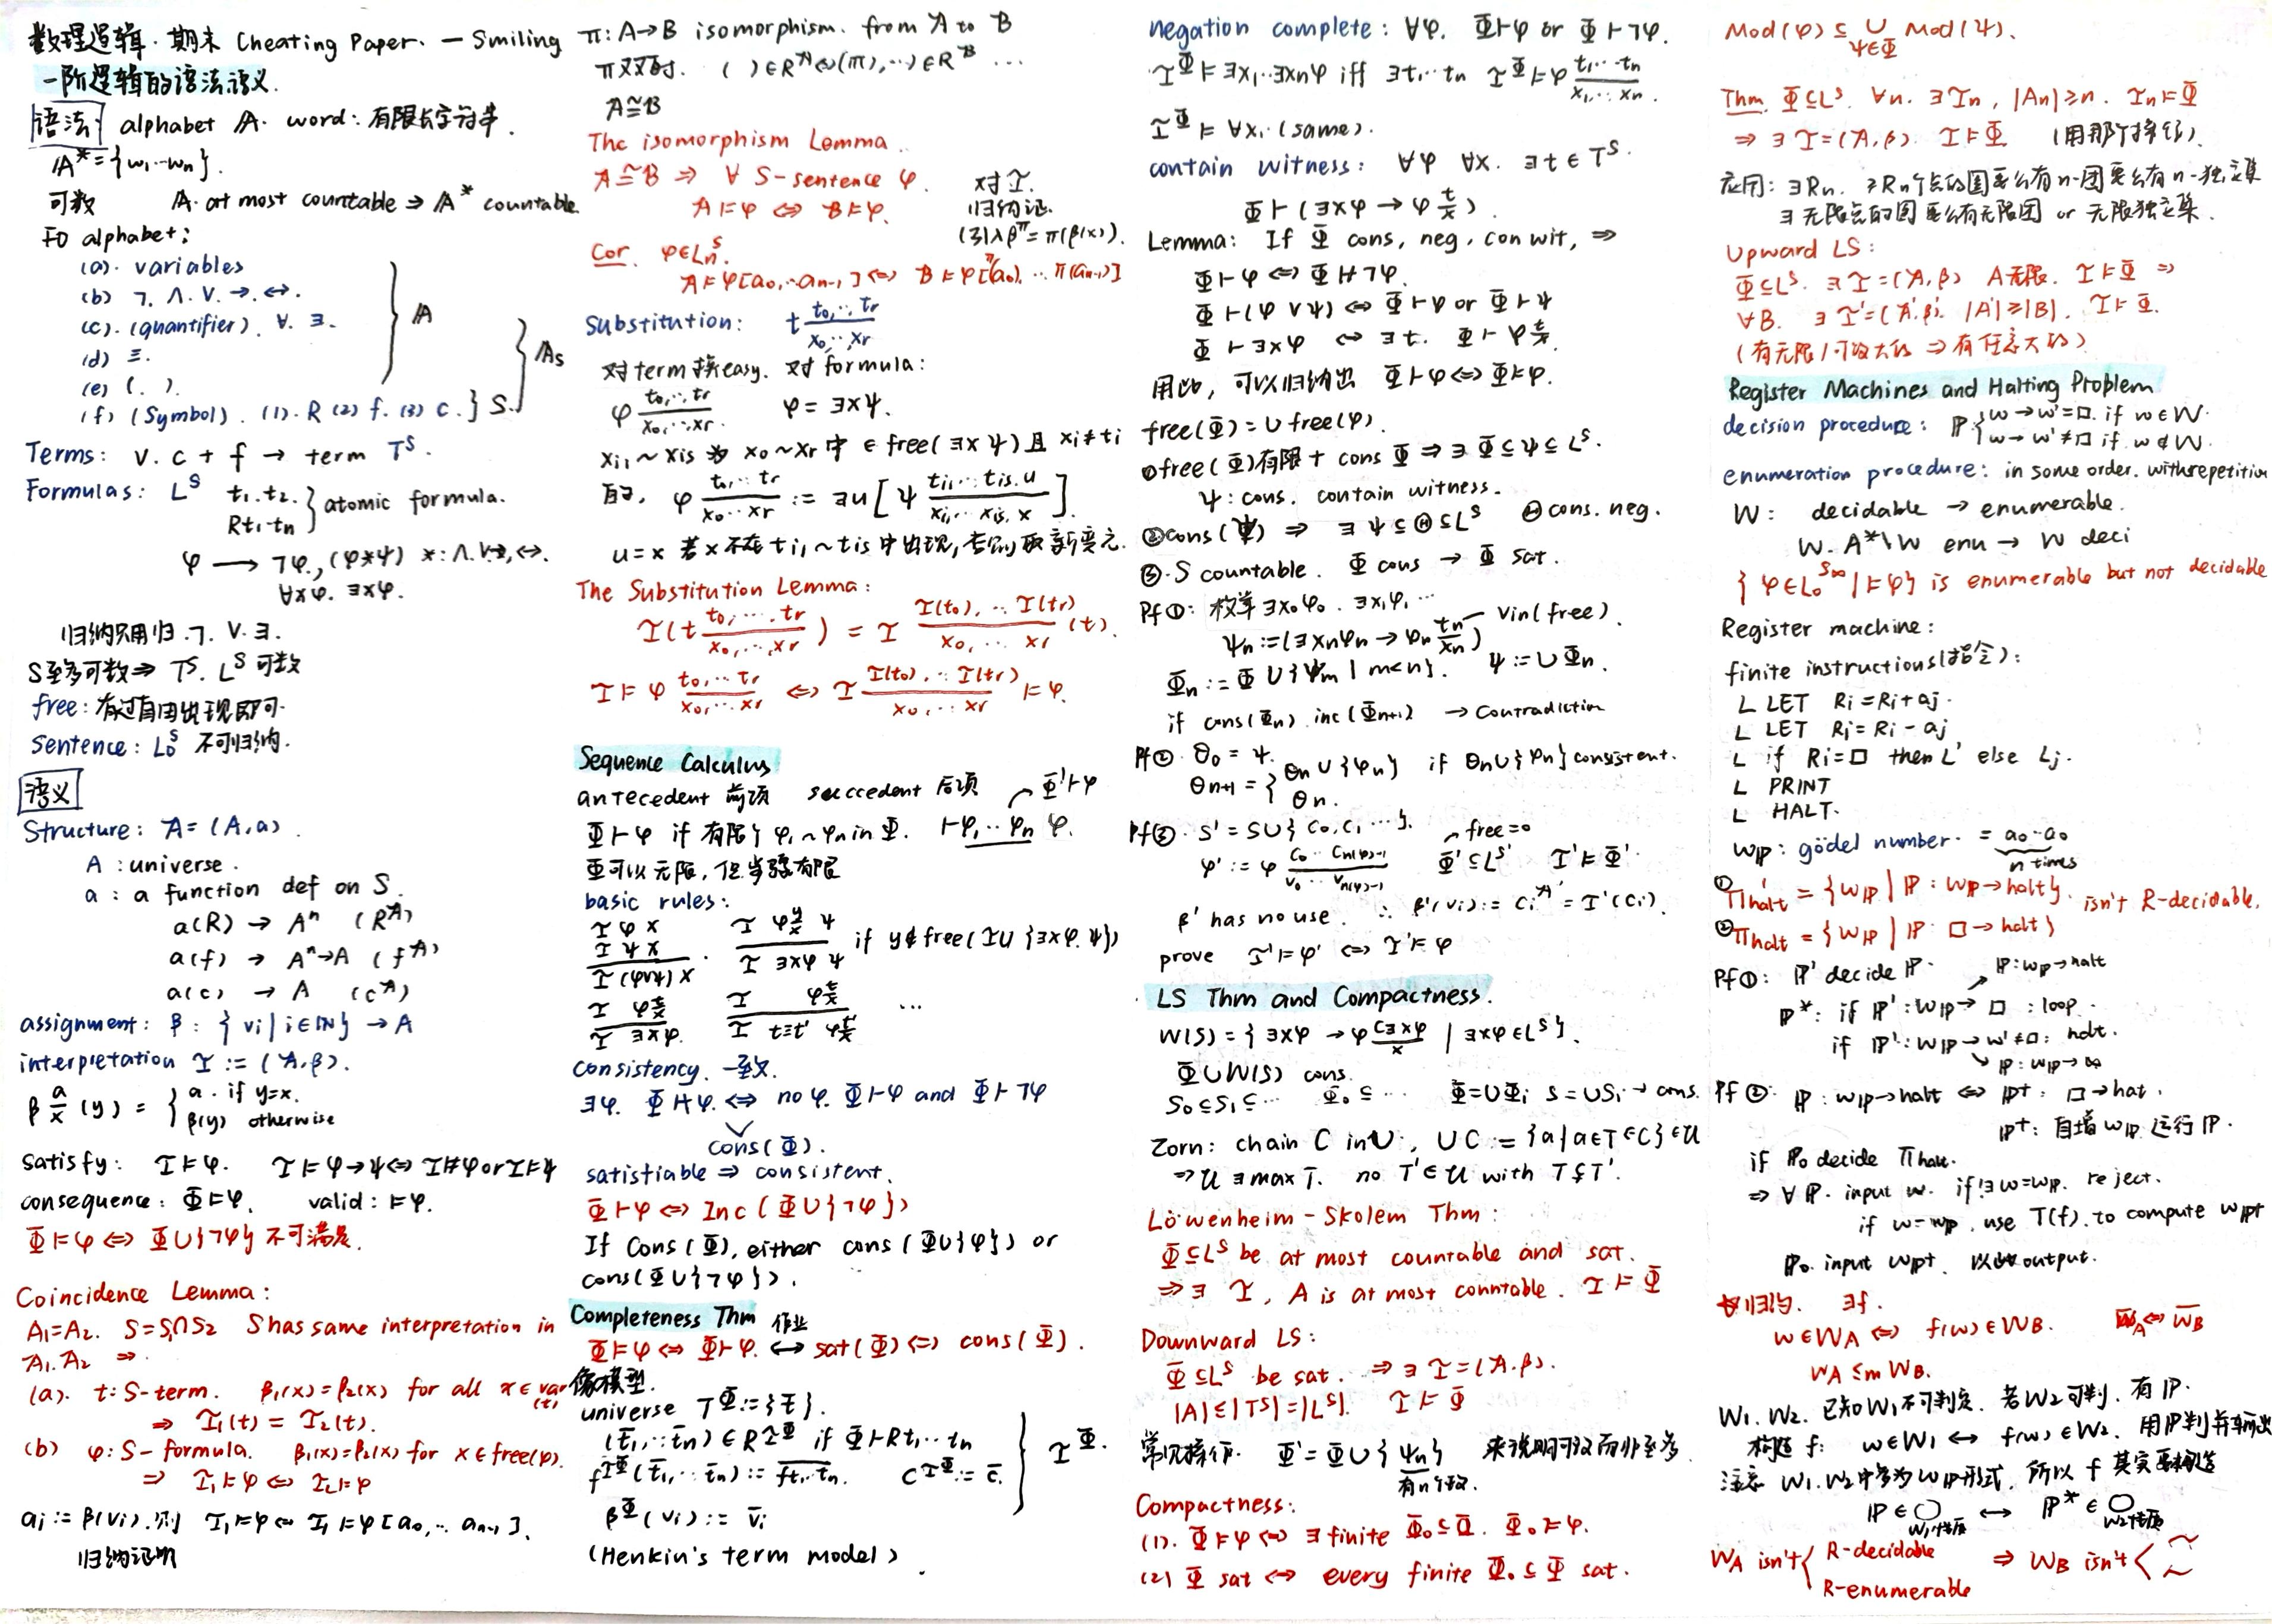 数理逻辑·期末 Cheating Paper. — Smiling
一阶逻辑的语法语义.
语法 alphabet 𝔸. word: 有限长字符串.
𝔸* = {w₁…wₙ}.
可数 𝔸 at most countable ⇒ 𝔸* countable.
FO alphabet:
(a). variables
(b) ¬. ∧. ∨. →. ↔.
(c). (quantifier). ∀. ∃.
(d) ≡.
(e) ( , ).
} 𝔸
(f) (Symbol). (1). R (2) f. (3) c. } S.
} 𝔸s
Terms: v. c + f → term Tˢ.
Formulas: Lˢ t₁.t₂. Rt₁…tn } atomic formula.
φ → ¬φ, (φ*ψ) *: ∧.∨.→,↔.
∀xφ. ∃xφ.
归纳只用归 .¬. ∨. ∃.
S至多可数 ⇒ Tˢ. Lˢ 可数
free: 有过自由出现即可.
Sentence: L₀ˢ 不可归纳.
语义
Structure: 𝒜 = (A,a).
A : universe.
a : a function def on S.
a(R) → Aⁿ (R^𝒜)
a(f) → Aⁿ→A (f^𝒜)
a(c) → A (c^𝒜)
assignment: β : {vi | i∈ℕ} → A
interpretation ℐ := (𝒜,β).
β a/x (y) = { a. if y=x. β(y) otherwise
satisfy: ℐ⊨φ. ℐ⊨φ→ψ ⇔ ℐ⊭φ or ℐ⊨ψ
consequence: Φ⊨φ. valid: ⊨φ.
Φ⊨φ ⇔ Φ∪{¬φ} 不可满足.
Coincidence Lemma:
A₁=A₂. S=S₁∩S₂ S has same interpretation in
𝒜₁.𝒜₂ ⇒
(a). t: S-term. β₁(x)=β₂(x) for all x∈var(t)
⇒ ℐ₁(t) = ℐ₂(t).
(b) φ: S-formula. β₁(x)=β₂(x) for x∈free(φ).
⇒ ℐ₁⊨φ ⇔ ℐ₂⊨φ
ai := β(vi). 则 ℐ₁⊨φ ⇔ ℐ₁⊨φ[a₀,…aₙ₋₁].
归纳证明
π: A→B isomorphism. from 𝒜 to ℬ
π双射. ( )∈R^𝒜 ⇔ (π(),…)∈R^ℬ …
𝒜≅ℬ
The isomorphism Lemma.
𝒜≅ℬ ⇒ ∀ S-sentence φ.
𝒜⊨φ ⇔ ℬ⊨φ.
对ℐ.
归纳证.
(引入β^π = π(β(x)).
Cor. φ∈Lₙˢ.
𝒜⊨φ[a₀,…aₙ₋₁] ⇔ ℬ⊨φ[π(a₀),…π(aₙ₋₁)]
Substitution: t t₀,…,tr / x₀,…,xr
对term 换easy. 对 formula:
φ t₀,…,tr / x₀,…,xr φ = ∃xψ.
xi₁ ~ xis 为 x₀~xr 中 ∈ free(∃xψ) 且 xi≠ti
的. φ t₀…tr / x₀…xr := ∃u[ψ ti₁…tis,u / xi₁…xis,x].
u=x 若x不在ti₁~tis中出现, 否则取新变元.
The Substitution Lemma:
ℐ(t t₀,…,tr / x₀,…,xr) = ℐ ℐ(t₀),…ℐ(tr) / x₀,…xr (t).
ℐ⊨φ t₀,…tr / x₀,…xr ⇔ ℐ ℐ(t₀),…ℐ(tr) / x₀,…xr ⊨φ.
Sequence Calculus
antecedent 前项 succedent 后项 Φ'⊢φ
Φ⊢φ if 有限个φ₁~φn in Φ. ⊢φ₁…φn φ.
Φ可以无限, 但步骤有限
basic rules:
ℐ φ χ
ℐ ψ χ
ℐ (φ∨ψ) χ
ℐ φ y/x ψ
ℐ ∃xφ ψ
if y∉free(ℐ∪{∃xφ.ψ})
ℐ φ t/x
ℐ ∃xφ.
ℐ φ t/x
ℐ t≡t' φ t'/x
…
Consistency. 一致.
∃φ. Φ⊬φ. ⇔ no φ. Φ⊢φ and Φ⊢¬φ
cons(Φ).
satisfiable ⇒ consistent.
Φ⊢φ ⇔ Inc(Φ∪{¬φ})
If Cons(Φ), either cons(Φ∪{φ}) or
cons(Φ∪{¬φ}).
Completeness Thm 作业
Φ⊨φ ⇔ Φ⊢φ. ↔ sat(Φ) ⇔ cons(Φ).
模型.
universe T^Φ := {t̄}.
(t̄₁,…t̄n)∈R^{ℐ^Φ} if Φ⊢Rt₁…tn
f^{ℐ^Φ}(t̄₁,…t̄n) := \overline{ft₁…tn}. c^{ℐ^Φ} := c̄.
β^Φ(vi) := v̄i
} ℐ^Φ.
(Henkin's term model).
negation complete: ∀φ. Φ⊢φ or Φ⊢¬φ.
ℐ^Φ⊨∃x₁…∃xnφ iff ∃t₁…tn ℐ^Φ⊨φ t₁…tn / x₁,…xn.
ℐ^Φ⊨∀x₁ (same).
contain witness: ∀φ ∀x. ∃t∈Tˢ.
Φ⊢(∃xφ→φ t/x).
Lemma: If Φ cons, neg, con wit, ⇒
Φ⊢φ ⇔ Φ⊬¬φ.
Φ⊢(φ∨ψ) ⇔ Φ⊢φ or Φ⊢ψ
Φ⊢∃xφ ⇔ ∃t. Φ⊢φ t/x.
用此, 可以归纳出 Φ⊢φ⇔Φ⊨φ.
free(Φ)=∪free(φ).
①free(Φ)有限 + cons Φ ⇒ ∃ Φ⊆Ψ⊆Lˢ.
Ψ: cons. contain witness.
②cons(Ψ) ⇒ ∃ Ψ⊆Θ⊆Lˢ Θ cons. neg.
③. S countable. Φ cons → Φ sat.
Pf①: 枚举 ∃x₀φ₀. ∃x₁φ₁…
ψn := (∃xnφn → φn tn/xn) vin(free).
Φn := Φ∪{ψm | m<n}. Ψ := ∪Φn.
if cons(Φn). inc(Φn+1) → Contradiction
Pf② Θ₀ = Ψ.
Θn+1 = { Θn∪{φn} if Θn∪{φn} consistent.
Θn.
Pf③. S' = S∪{c₀,c₁…}.
φ' := φ c₀…cn(φ)-1 / v₀…vn(φ)-1 free=0 Φ'⊆L^{S'} ℐ'⊨Φ'.
β' has no use. ∴ β'(vi) := ci^{𝒜'} = ℐ'(ci).
prove ℐ'⊨φ' ⇔ ℐ'⊨φ
LS Thm and Compactness.
W(S) = {∃xφ→φ c∃xφ / x | ∃xφ∈Lˢ}.
Φ∪W(S) cons.
S₀⊆S₁⊆… Φ₀⊆… Φ=∪Φi S=∪Si → cons.
Zorn: chain C in 𝒰, ∪C := {a|a∈T∈C}∈𝒰
⇒ 𝒰 ∃ max T. no T'∈𝒰 with T⊊T'.
Löwenheim-Skolem Thm:
Φ⊆Lˢ be at most countable and sat.
⇒ ∃ ℐ, A is at most countable. ℐ⊨Φ
Downward LS:
Φ⊆Lˢ be sat. ⇒ ∃ ℐ=(𝒜,β).
|A|≤|Tˢ|=|Lˢ|. ℐ⊨Φ
常见操作. Φ'=Φ∪{ψn} 来说明可数而非至多.
Compactness:
(1). Φ⊨φ ⇔ ∃ finite Φ₀⊆Φ. Φ₀⊨φ.
(2) Φ sat ⇔ every finite Φ₀⊆Φ sat.
Mod(φ) ⊆ ∪ψ∈Φ Mod(ψ).
Thm. Φ⊆Lˢ. ∀n. ∃ℐn, |An|≥n. ℐn⊨Φ
⇒ ∃ ℐ=(𝒜,β). ℐ⊨Φ
应用: ∃Rn. ≥Rn个点的图要么有n-团要么有n-独立集
∃ 无限点的图要么有无限团 or 无限独立集.
Upward LS:
Φ⊆Lˢ. ∃ℐ=(𝒜,β) A无限. ℐ⊨Φ ⇒
∀B. ∃ℐ'=(𝒜',β'. |A'|≥|B|. ℐ⊨Φ.
(有无限/可数大的 ⇒ 有任意大的)
Register Machines and Halting Problem
decision procedure: ℙ { w→w'=□. if w∈W.
w→w'≠□ if w∉W.
enumeration procedure: in some order. with repetition
W: decidable → enumerable.
W. A*\W enu → W deci
{φ∈L₀^{S∞} | ⊨φ} is enumerable but not decidable
Register machine:
finite instructions(指令):
L LET Ri=Ri+aj.
L LET Ri=Ri-aj
L if Ri=□ then L' else Lj.
L PRINT
L HALT.
wℙ: gödel number. = a₀…a₀
n times
①Π'halt = {wℙ | ℙ: wℙ→halt}. isn't R-decidable.
②Πhalt = {wℙ | ℙ: □→halt}
Pf①: ℙ' decide ℙ. ℙ:wℙ→halt
ℙ*: if ℙ': wℙ→ □ : loop.
if ℙ': wℙ→w'≠□: halt.
ℙ: wℙ→∞
Pf②: ℙ: wℙ→halt ⇔ ℙ⁺: □→hat.
ℙ⁺: 自增 wℙ 运行ℙ.
if ℙ₀ decide Πhalt.
⇒ ∀ℙ. input w. if !∃w=wℙ. reject.
if w=wℙ, use T(f). to compute wℙ⁺
ℙ₀ input wℙ⁺. 以此output.
归约. ∃f.
w∈WA ⇔ f(w)∈WB. W̄A⇔W̄B
WA ≤m WB.
W₁.W₂. 已知W₁不可判定. 若W₂可判. 有ℙ.
构造f: w∈W₁ ↔ f(w)∈W₂. 用ℙ判并输出
注意 W₁.W₂中多为wℙ形式. 所以f其实要构造
ℙ∈○ ↔ ℙ*∈○
W₁性质 W₂性质
WA isn't { R-decidable R-enumerable ⇒ WB isn't {